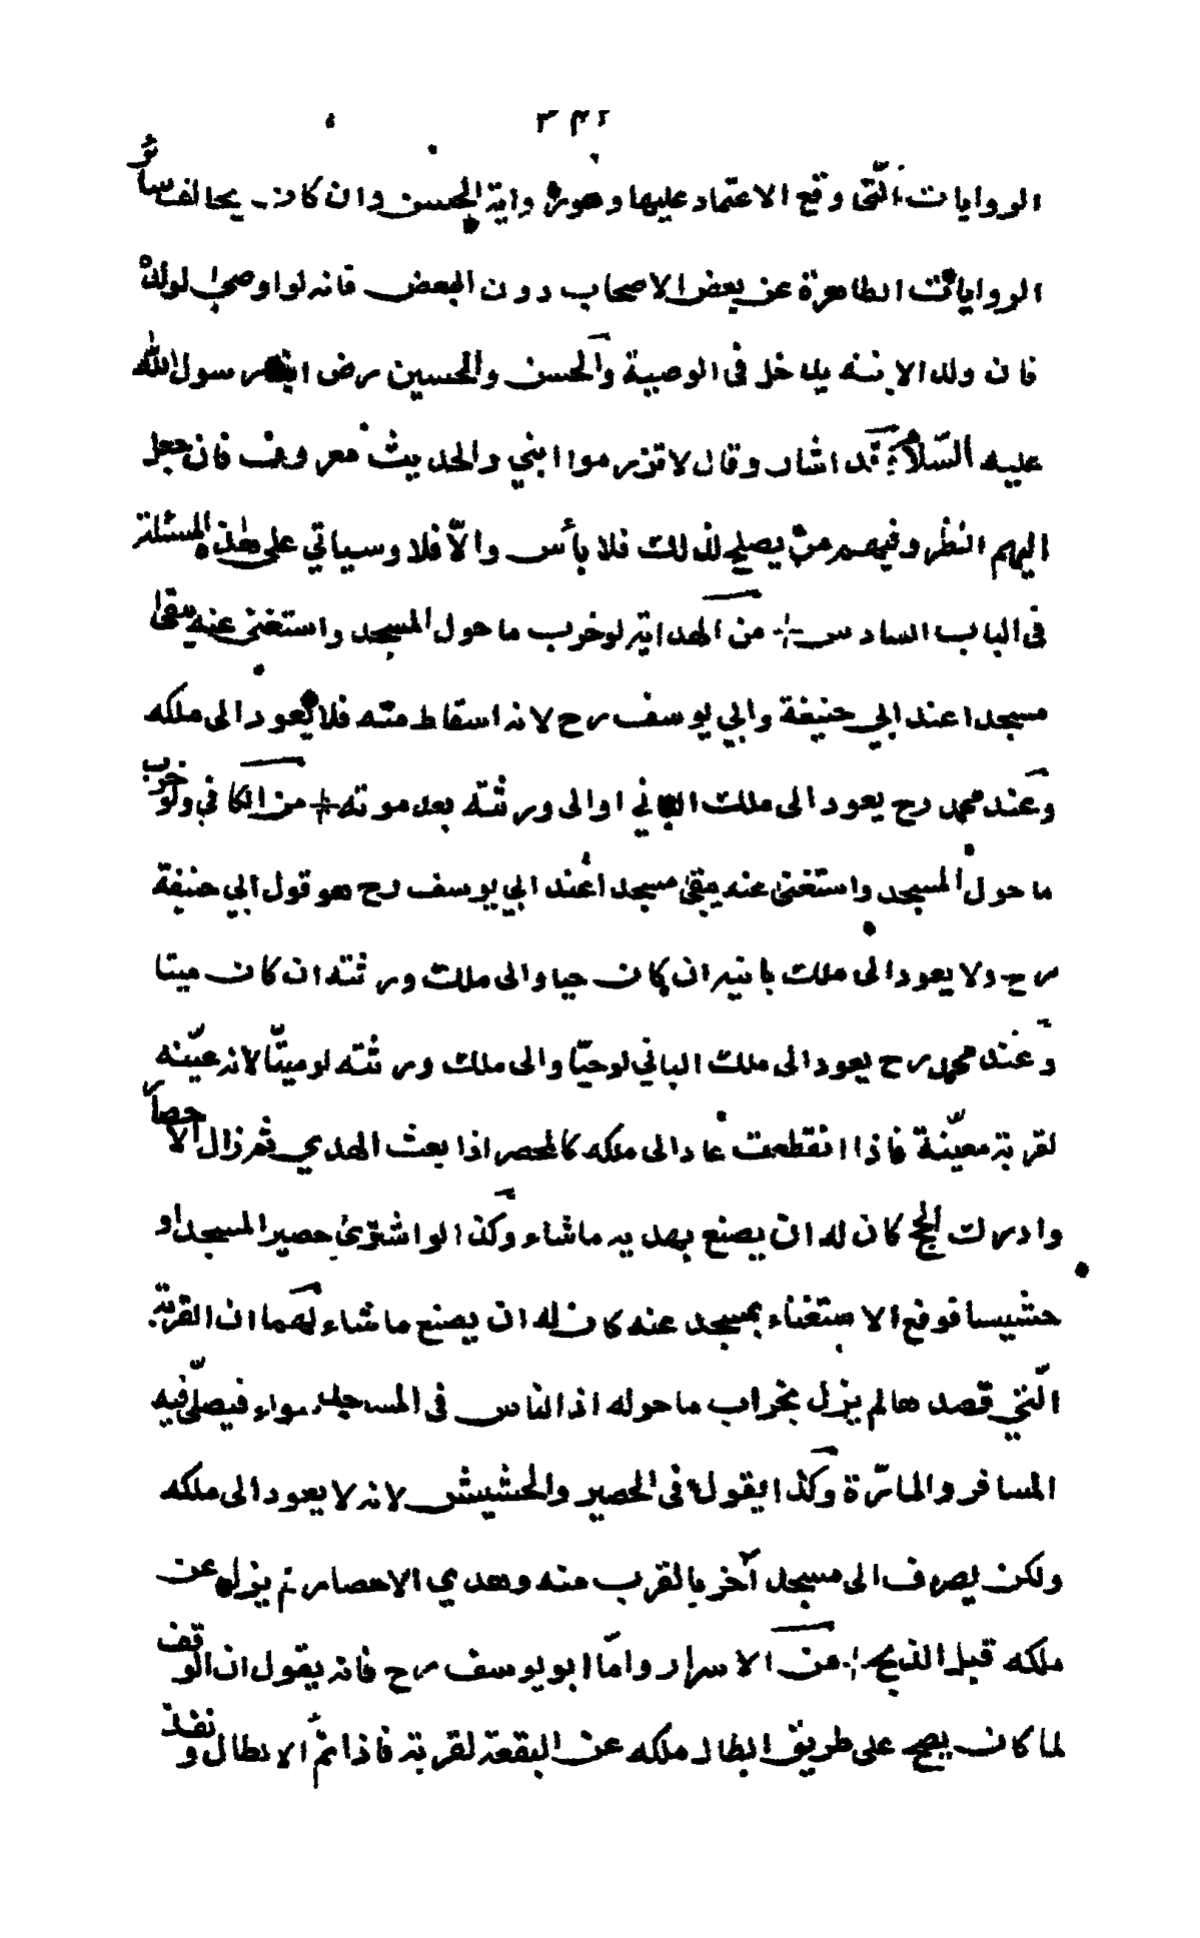 الروايات الّتي وقع الاعتماد عليها وهو رواية الحسن وان كان يخالف سائر
الروايات الظاهرة عن بعض الاصحاب دون البعض فانه لو اوصى لولده
فان ولد الابنة يدخل في الوصية والحسن والحسين رض رسول الله
عليه السّلام قد اشار وقال لا تزرموا ابني والحديث معروف فان جعل
اليهم النظر وفيهم من يصلح لذلك فلا بأس والّا فلا وسياتي على هذه المسئلة
في الباب السادس من الهداية لو خرب ما حول المسجد واستغنى عنه يبقى
مسجدا عند ابي حنيفة وابي يوسف رح لانه اسقاط منه فلا يعود الى ملكه
وعند محمد رح يعود الى ملك الباني او الى ورثته بعد موته من الكافي ولو خرب
ما حول المسجد واستغنى عنه يبقى مسجدا عند ابي يوسف رح هو قول ابي حنيفة
رح ولا يعود الى ملك بانيه ان كان حيا والى ملك ورثته ان كان ميتا
وعند محمد رح يعود الى ملك الباني لو حيّا والى ملك ورثته لو ميتّا لانه عيّنه
لقربة معيّنة فاذا انقطعت عاد الى ملكه كالمحصر اذا بعث الهدي ثم زال الاحصار
وادرك الحج كان له ان يصنع بهديه ما شاء وكذا لو اشترى حصير المسجد او
حشيسا فوقع الاستغناء بمسجد عنه كان له ان يصنع ما شاء لهما ان القربة
الّتي قصدها لم يزل بخراب ما حوله اذ الناس في المسجد سواء فيصلّي فيه
المسافر والمارّة وكذا يقول في الحصير والحشيش لانه لا يعود الى ملكه
ولكن يصرف الى مسجد آخر بالقرب منه وهدي الاحصار لم يزل عن
ملكه قبل الذبح من الاسرار وامّا ابو يوسف رح فانه يقول ان الوقف
لما كان يصح على طريق ابطال ملكه عن البقعة لقربة فاذا تمّ الابطال ونفذ